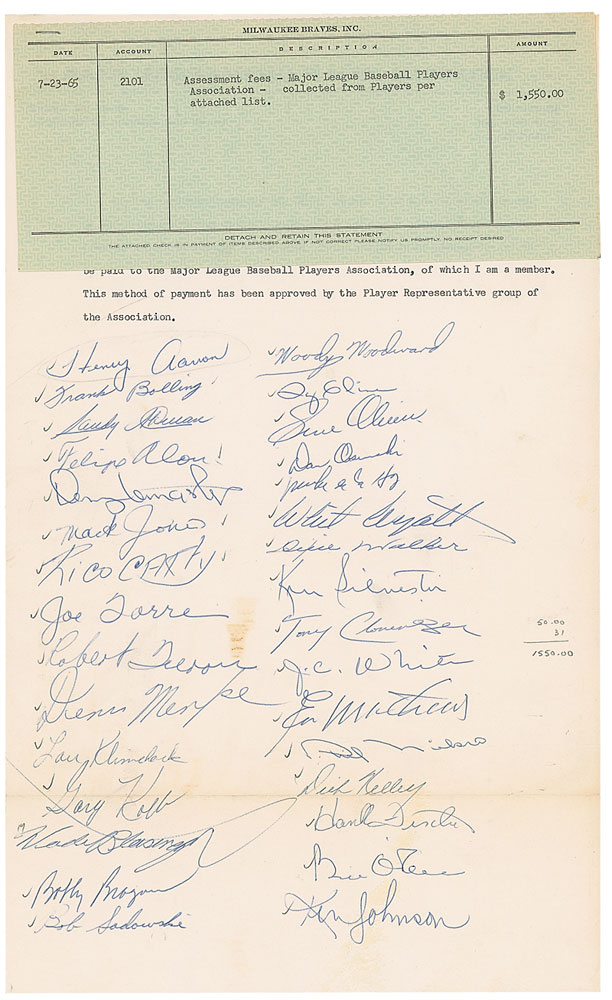 MILWAUKEE BRAVES, INC.
DATE ACCOUNT DESCRIPTION AMOUNT
7-23-65 2101 Assessment fees - Major League Baseball Players $ 1,550.00
Association - collected from Players per
attached list.
DETACH AND RETAIN THIS STATEMENT
THE ATTACHED CHECK IS IN PAYMENT OF ITEMS DESCRIBED ABOVE IF NOT CORRECT PLEASE NOTIFY US PROMPTLY. NO RECEIPT DESIRED
be paid to the Major League Baseball Players Association, of which I am a member.
This method of payment has been approved by the Player Representative group of
the Association.
Henry Aaron
Frank Bolling
Sandy Alomar
Felipe Alou
Denny Lemaster
Mack Jones
Rico Carty
Joe Torre
Robert
Denis Menke
Lou Klimchock
Gary Kolb
Wade Blasingame
Bobby Bragan
Bob Sadowski
Woody Woodward
Ty Cline
Gene Oliver
Dan Osinski
Whit Wyatt
Dixie Walker
Ken Silvestri
Tony Cloninger
J.C. White
Ed Mathews
Dick Kelley
Hank Fischer
Billy O'Dell
Ken Johnson
50.00
31
1550.00